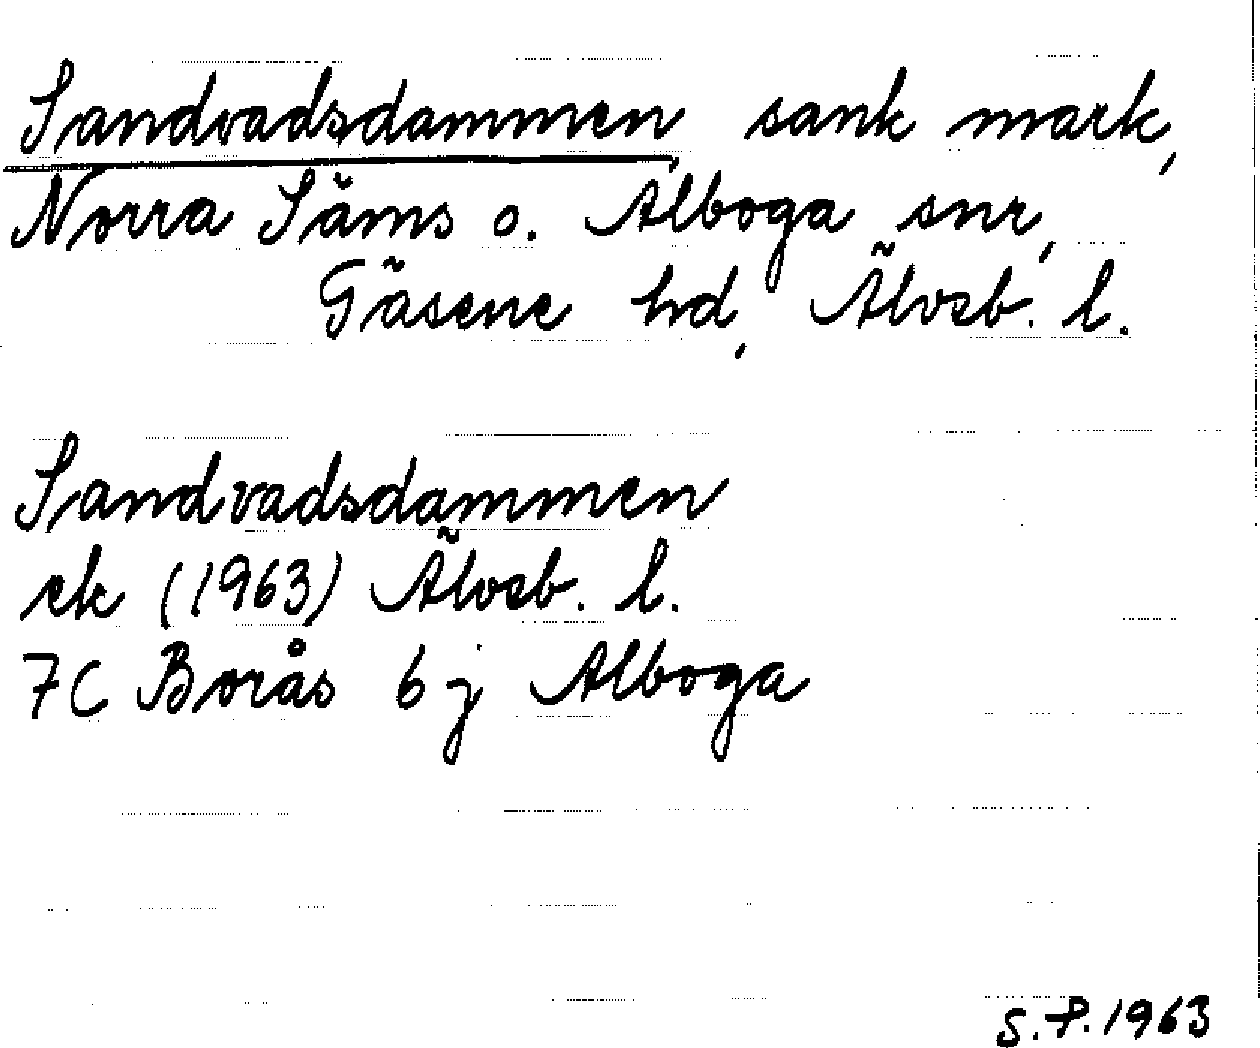 Sandvadsdammen, sank mark,
Norra Säms o. Alboga snr,
Gäsene hd, Älvsb. l.
Sandvadsdammen
ek (1963) Älvsb. l.
7C Borås 6j Alboga
S.P. 1963